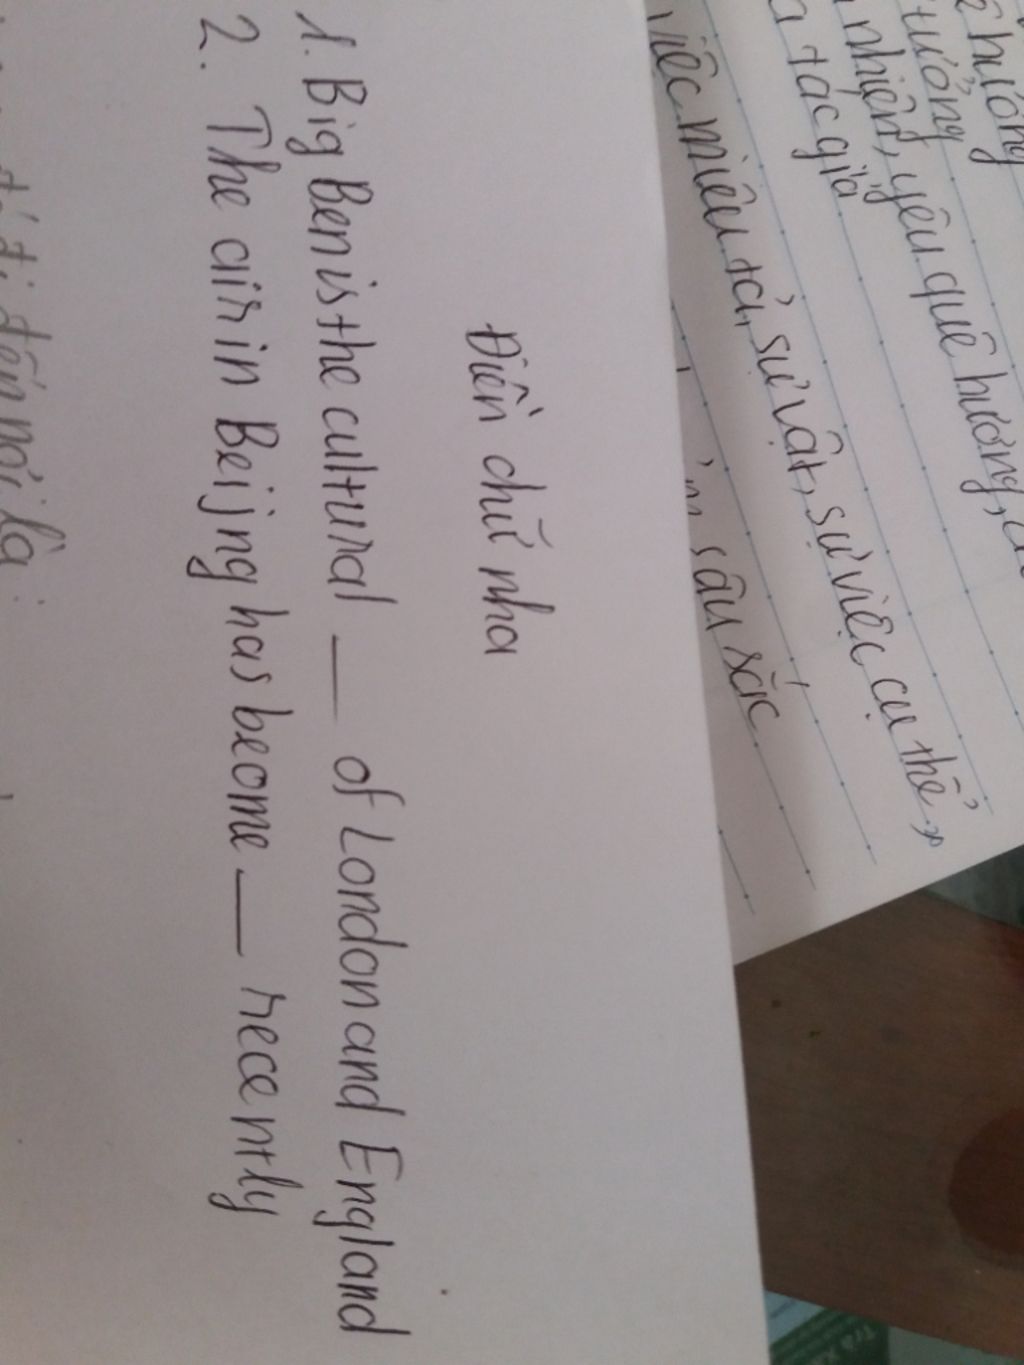 ê hương
tưởng
nhiên, yêu quê hương,
a tác giả
việc miêu tả, sự vật, sự việc cụ thể,
sâu sắc
Điền chữ nha
1. Big Ben is the cultural __ of London and England
2. The air in Beijng has beome __ recently